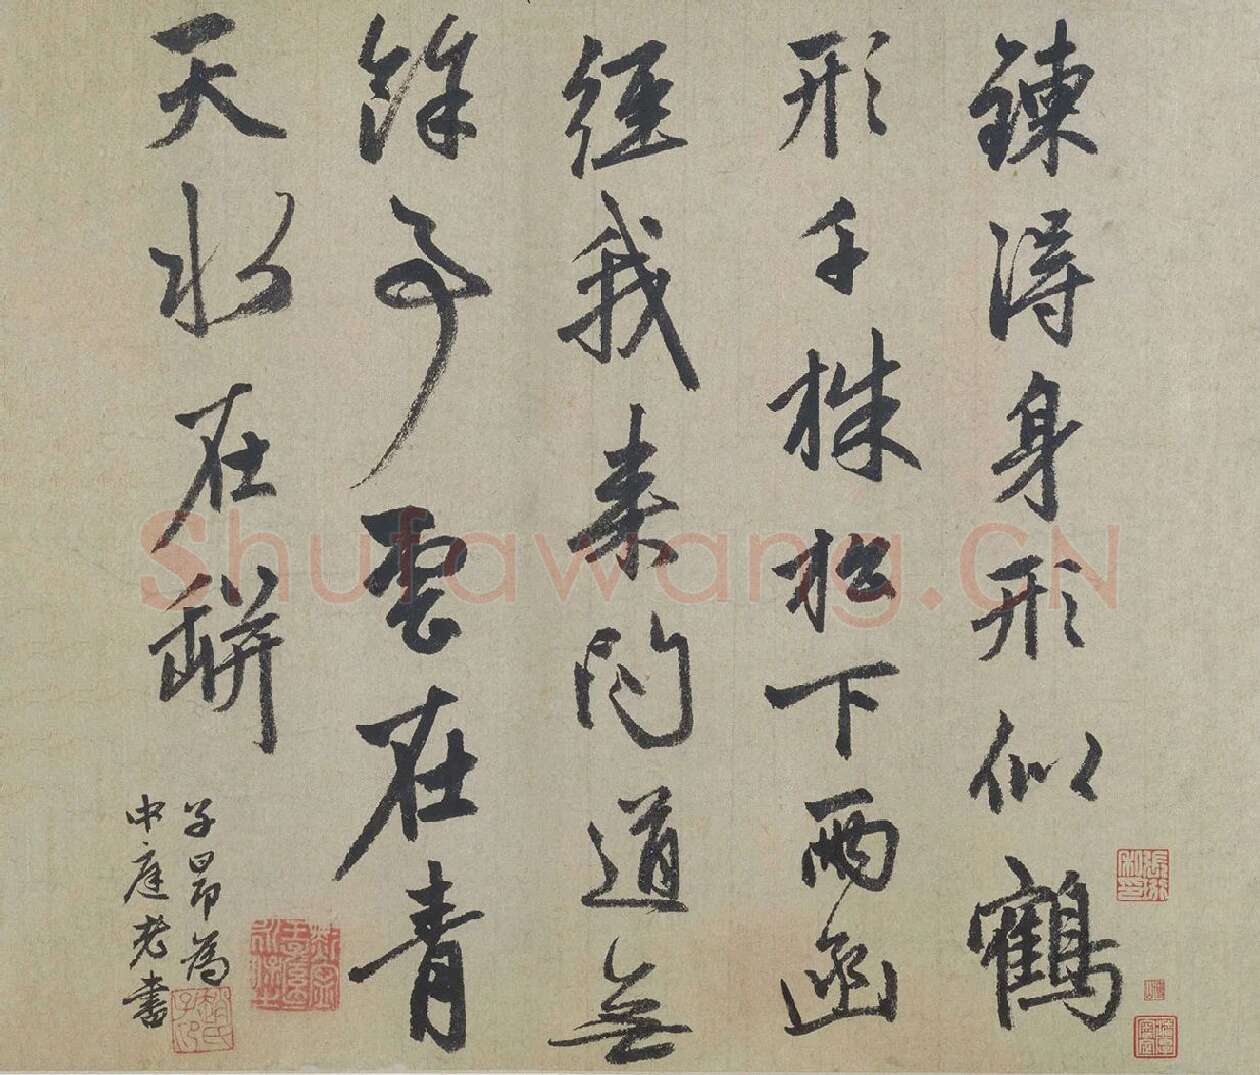 鍊得身形似鶴
形千株松下兩函
經我来问道無
餘事雲在青
天水在缾
子昂為
中庭老書
Shufawang.CN
趙氏子昂